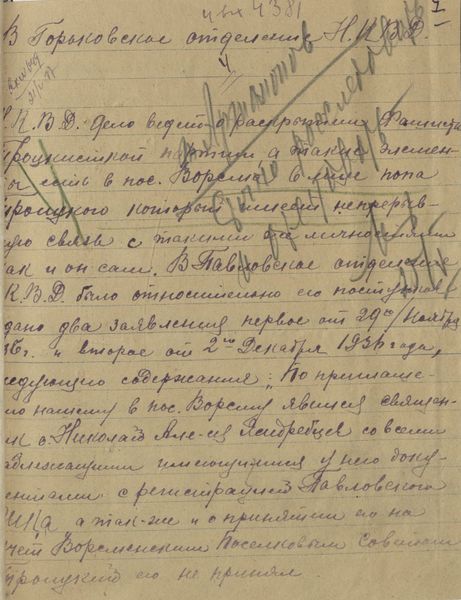 и вх 4381
1
В Горьковское отделение Н.К.В.Д.
Н.К.В.Д. дело ведет о раскрытии Фашистс
троцкистской партии а такие элемен-
ты есть в пос. Ворсма в лице попа
троицкого который имеет непрерыв-
ную связь с такими же личностями
как и он сам. В Павловское отделение
Н.К.В.Д. было относительно его поступков
дано два заявления первое от 29го Ноября
36г. и второе от 2го Декабря 1936 года,
следующего содержания: "По приглаше-
нию нашему в пос. Ворсму явился священ-
ик о. Николай Але-ев Ястребцев со всеми
адлежащими имеющимися у него доку-
ентами с регистрацией Павловского
а так-же и о принятии его на
учет Ворсменским Поселковым Советом
троицкий его не принял